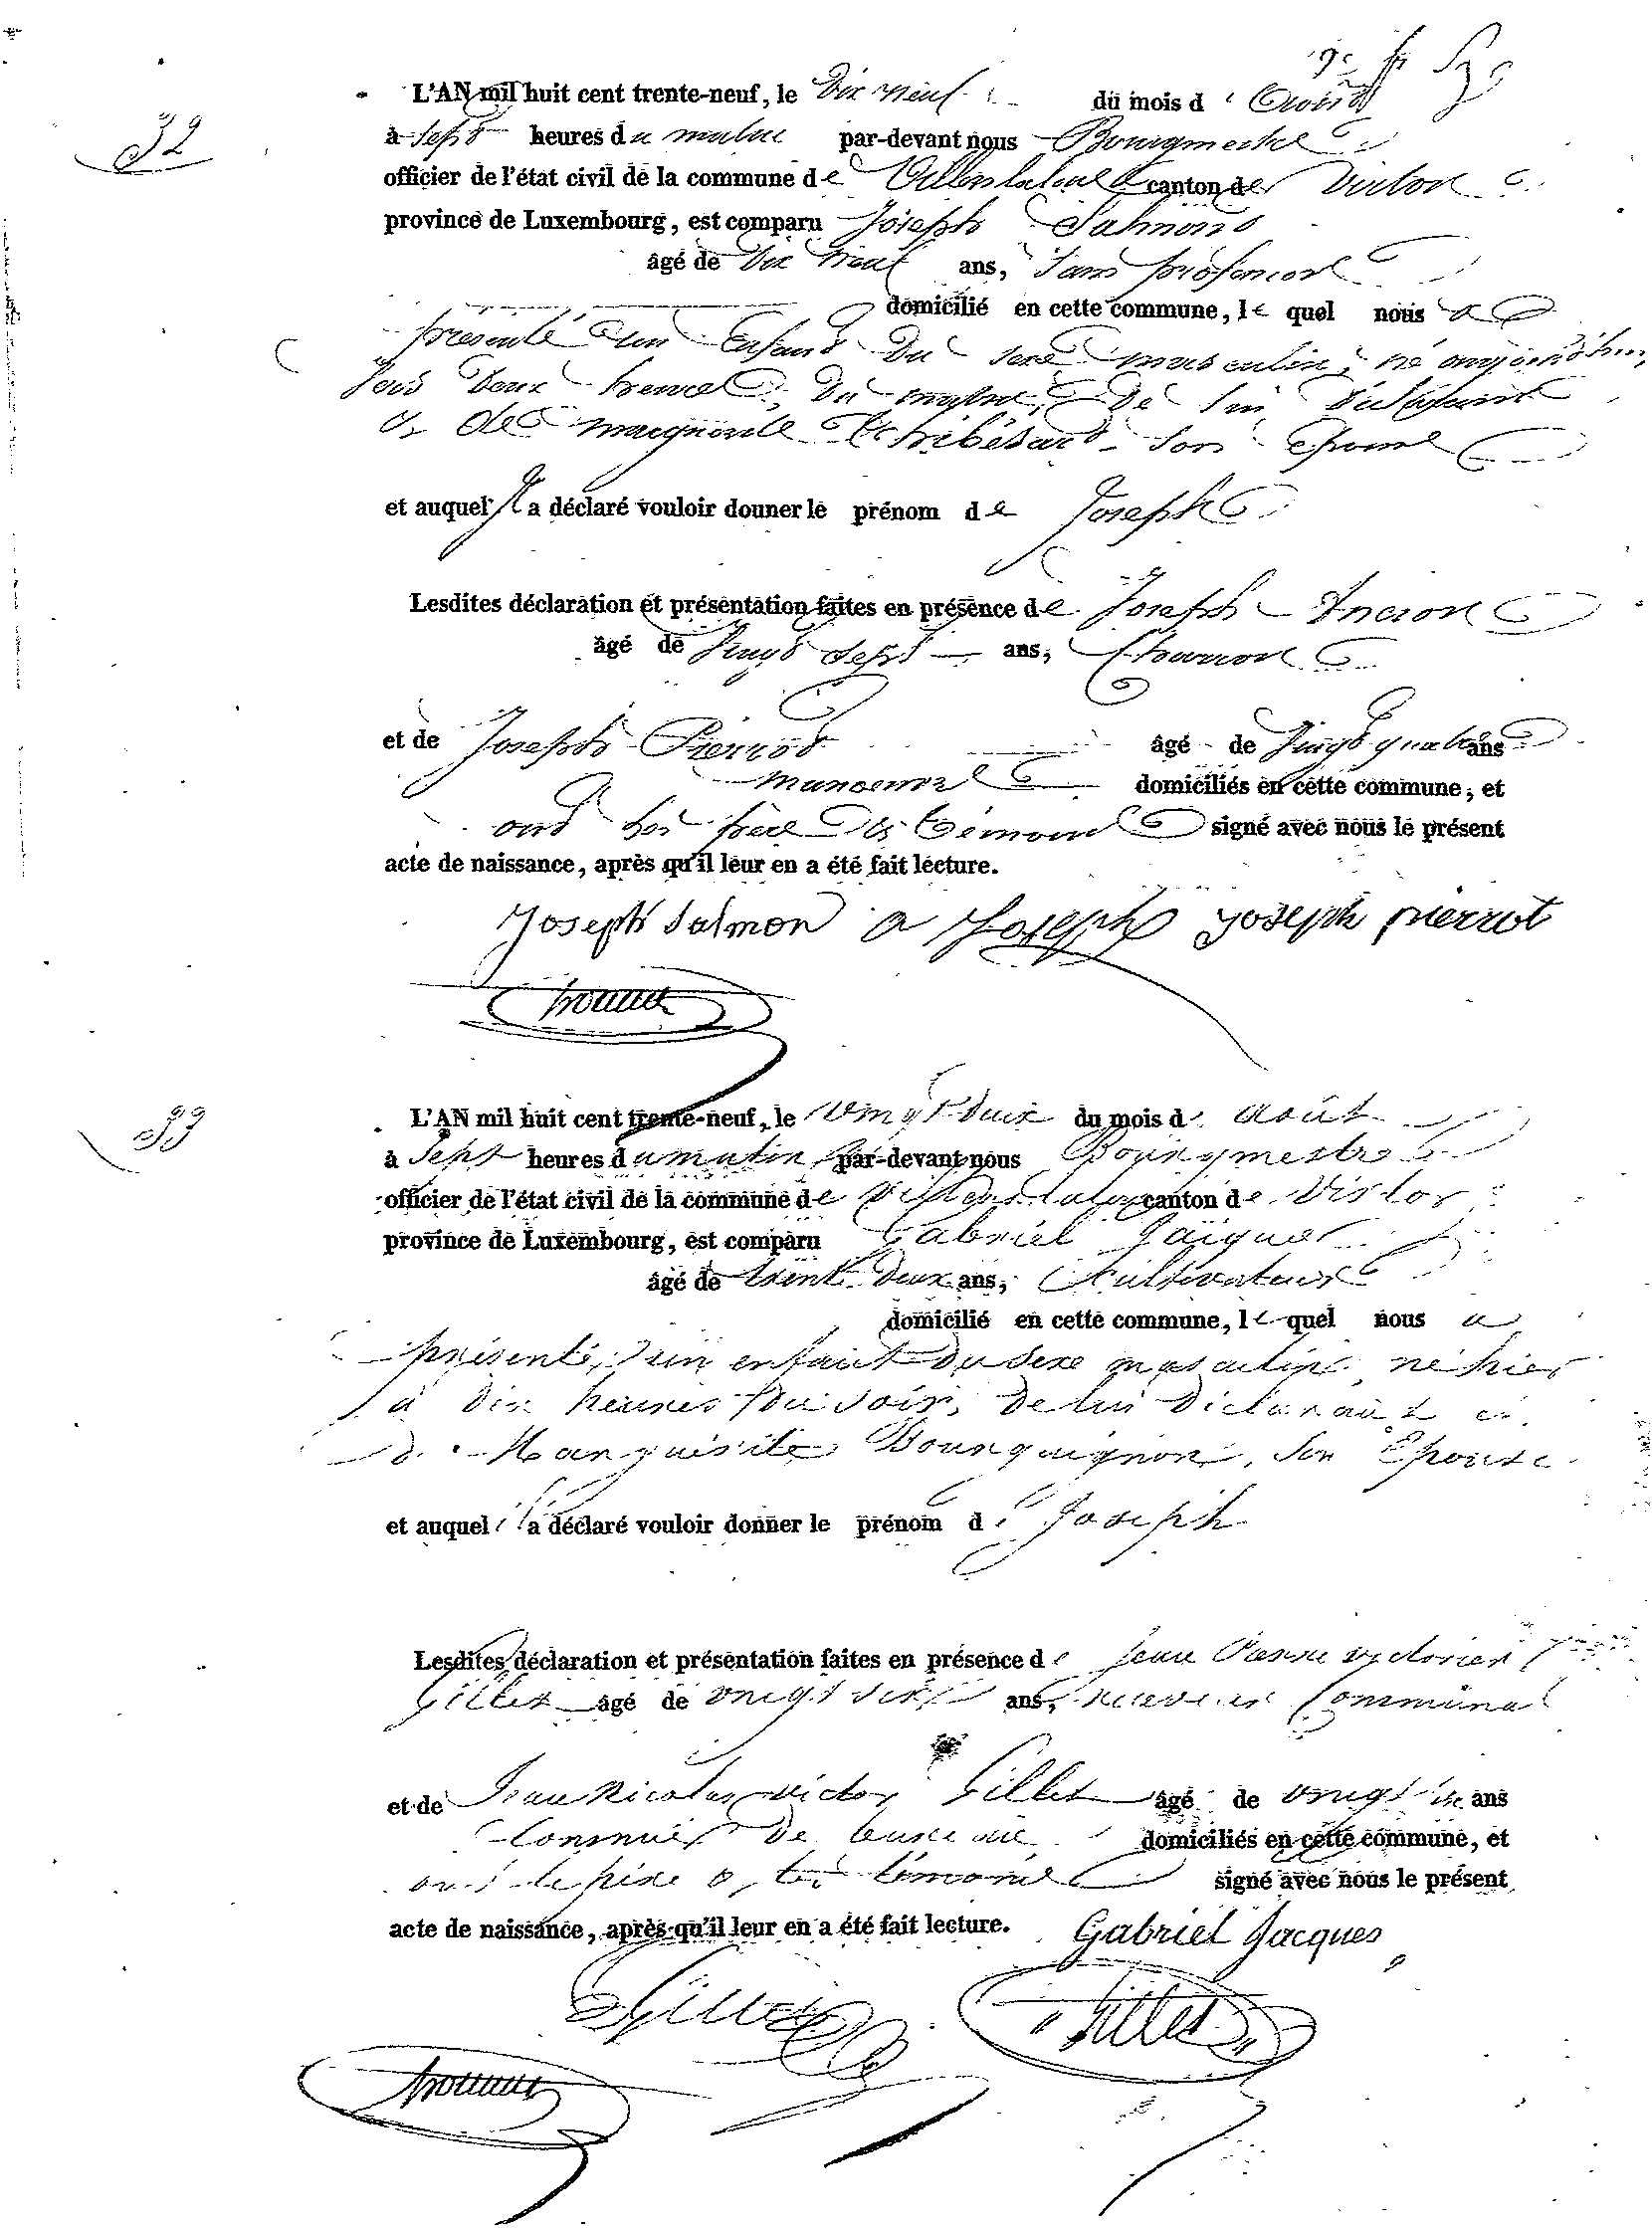 32
L'AN mil huit cent trente-neuf, le Dix neuf du mois d'Août
à sept heures du matin par-devant nous Bourgmestre
officier de l'état civil de la commune de canton de Virton
province de Luxembourg, est comparu Joseph Salmon
âgé de Dix neuf ans, sans profession
domicilié en cette commune, lequel nous a
présenté un Enfant Du sexe masculin, né aujourd'hui,
Deux heures, Du matin, De lui Déclarant
& de marguerite son Epouse
et auquel Il a déclaré vouloir donner le prénom de Joseph
Lesdites déclaration et présentation faites en présence de Joseph
âgé de Vingt sept ans, Charron
et de Joseph Pierrot âgé de Vingt quatre ans
domiciliés en cette commune, et
ont les père & témoins signé avec nous le présent
acte de naissance, après qu'il leur en a été fait lecture.
Joseph Salmon a Joseph Joseph pierrot
33
L'AN mil huit cent trente-neuf, le vingt deux du mois d'août
à Sept heures du matin par-devant nous Bourgmestre
officier de l'état civil de la commune de canton de Virton
province de Luxembourg, est comparu Gabriel Jacques
âgé de trente Deux ans, Cultivateur
domicilié en cette commune, lequel nous a
présenté, un enfant Du Sexe masculin, né hier
à Dix heures Du soir, De lui Déclarant et
de Marguerite Bourguignon, Son Epouse
et auquel il a déclaré vouloir donner le prénom de Joseph
Lesdites déclaration et présentation faites en présence de Jean
Gillet âgé de vingt ans, receveur Communal
et de Jean Nicolas Victor Gillet âgé de vingt ans
Commis De domiciliés en cette commune, et
ont le père & les témoins signé avec nous le présent
acte de naissance, après qu'il leur en a été fait lecture. Gabriel Jacques
Gillet Gillet